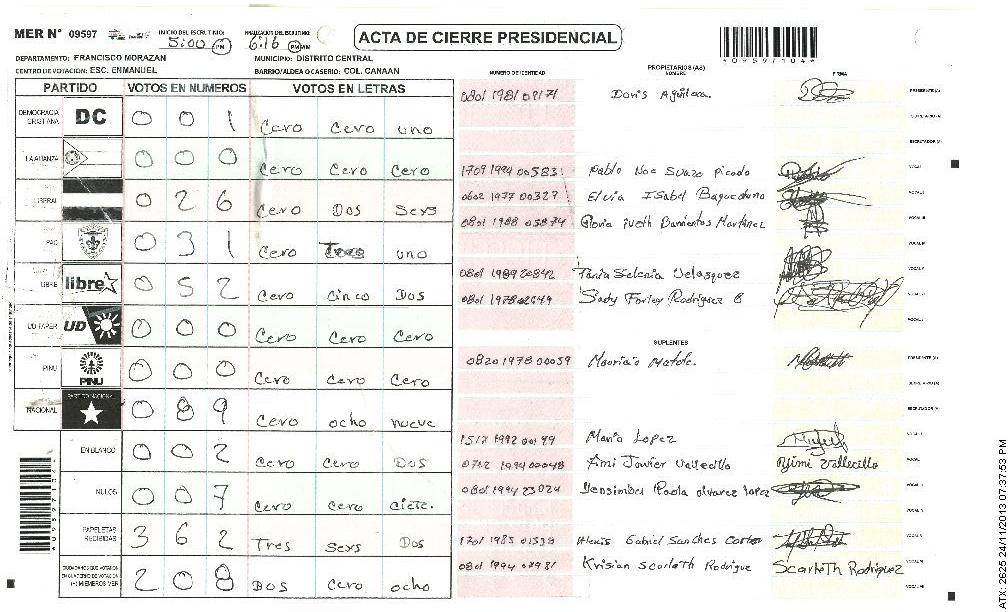 MER N° 09597 INICIO DEL ESCRUTINIO: 5:00 PM FINALIZACION DEL ESCRUTINIO: 6:16 PM ACTA DE CIERRE PRESIDENCIAL *0959710 4*
DEPARTAMENTO: FRANCISCO MORAZAN MUNICIPIO: DISTRITO CENTRAL
CENTRO DE VOTACION: ESC. ENMANUEL BARRIO/ALDEA O CASERIO: COL. CANAAN
PARTIDO VOTOS EN NUMEROS VOTOS EN LETRAS NUMERO DE IDENTIDAD PROPIETARIOS (AS) NOMBRE FIRMA
DEMOCRACIA CRISTIANA DC 0 0 1 Cero Cero uno
LA ALIANZA 0 0 0 Cero Cero Cero
LIBERAL 0 2 6 Cero Dos Seys
PAC 0 3 1 Cero uno
LIBRE libre 0 5 2 Cero Cinco Dos
UD FAPER UD 0 0 0 Cero Cero Cero
PINU PINU 0 0 0 Cero Cero Cero
NACIONAL PARTIDO NACIONAL 0 8 9 Cero ocho nueve
EN BLANCO 0 0 2 Cero Cero Dos
NULOS 0 0 7 Cero cero ciete.
PAPELETAS RECIBIDAS 3 6 2 Tres Seys Dos
CIUDADANOS QUE VOTARON EN CUADERNO DE VOTACION (+) MIEMBROS MER 2 0 8 Dos cero ocho
Doris Aguilera. PRESIDENTE (A)
SECRETARIO (A)
ESCRUTADOR (A)
1709 1994 00583 Pablo Noe Suazo Picado VOCAL I
0602 1977 00327 Elvia Isabel Baquedano VOCAL II
0801 1988 05874 Gloria iveth Barrientos Martinez VOCAL III
VOCAL IV
0801 1989 20842 Tania Selenia Velasquez VOCAL V
0801 1978 02649 Sady Farley Rodriguez B VOCAL VI
SUPLENTES
0820 1978 00059 Mauricio PRESIDENTE (A)
SECRETARIO (A)
ESCRUTADOR (A)
1517 1992 00199 Mario Lopez VOCAL I
Javier Vallecillo Yimi Vallecillo VOCAL
0801 1994 23024 Paola alvarez lopez
1701 1985 01538 Alexis Gabriel Sanches
Krisian Scarleth Rodrigue Scarleth Rodriguez
ATX: 2625 24/11/2013 07:37:53 PM